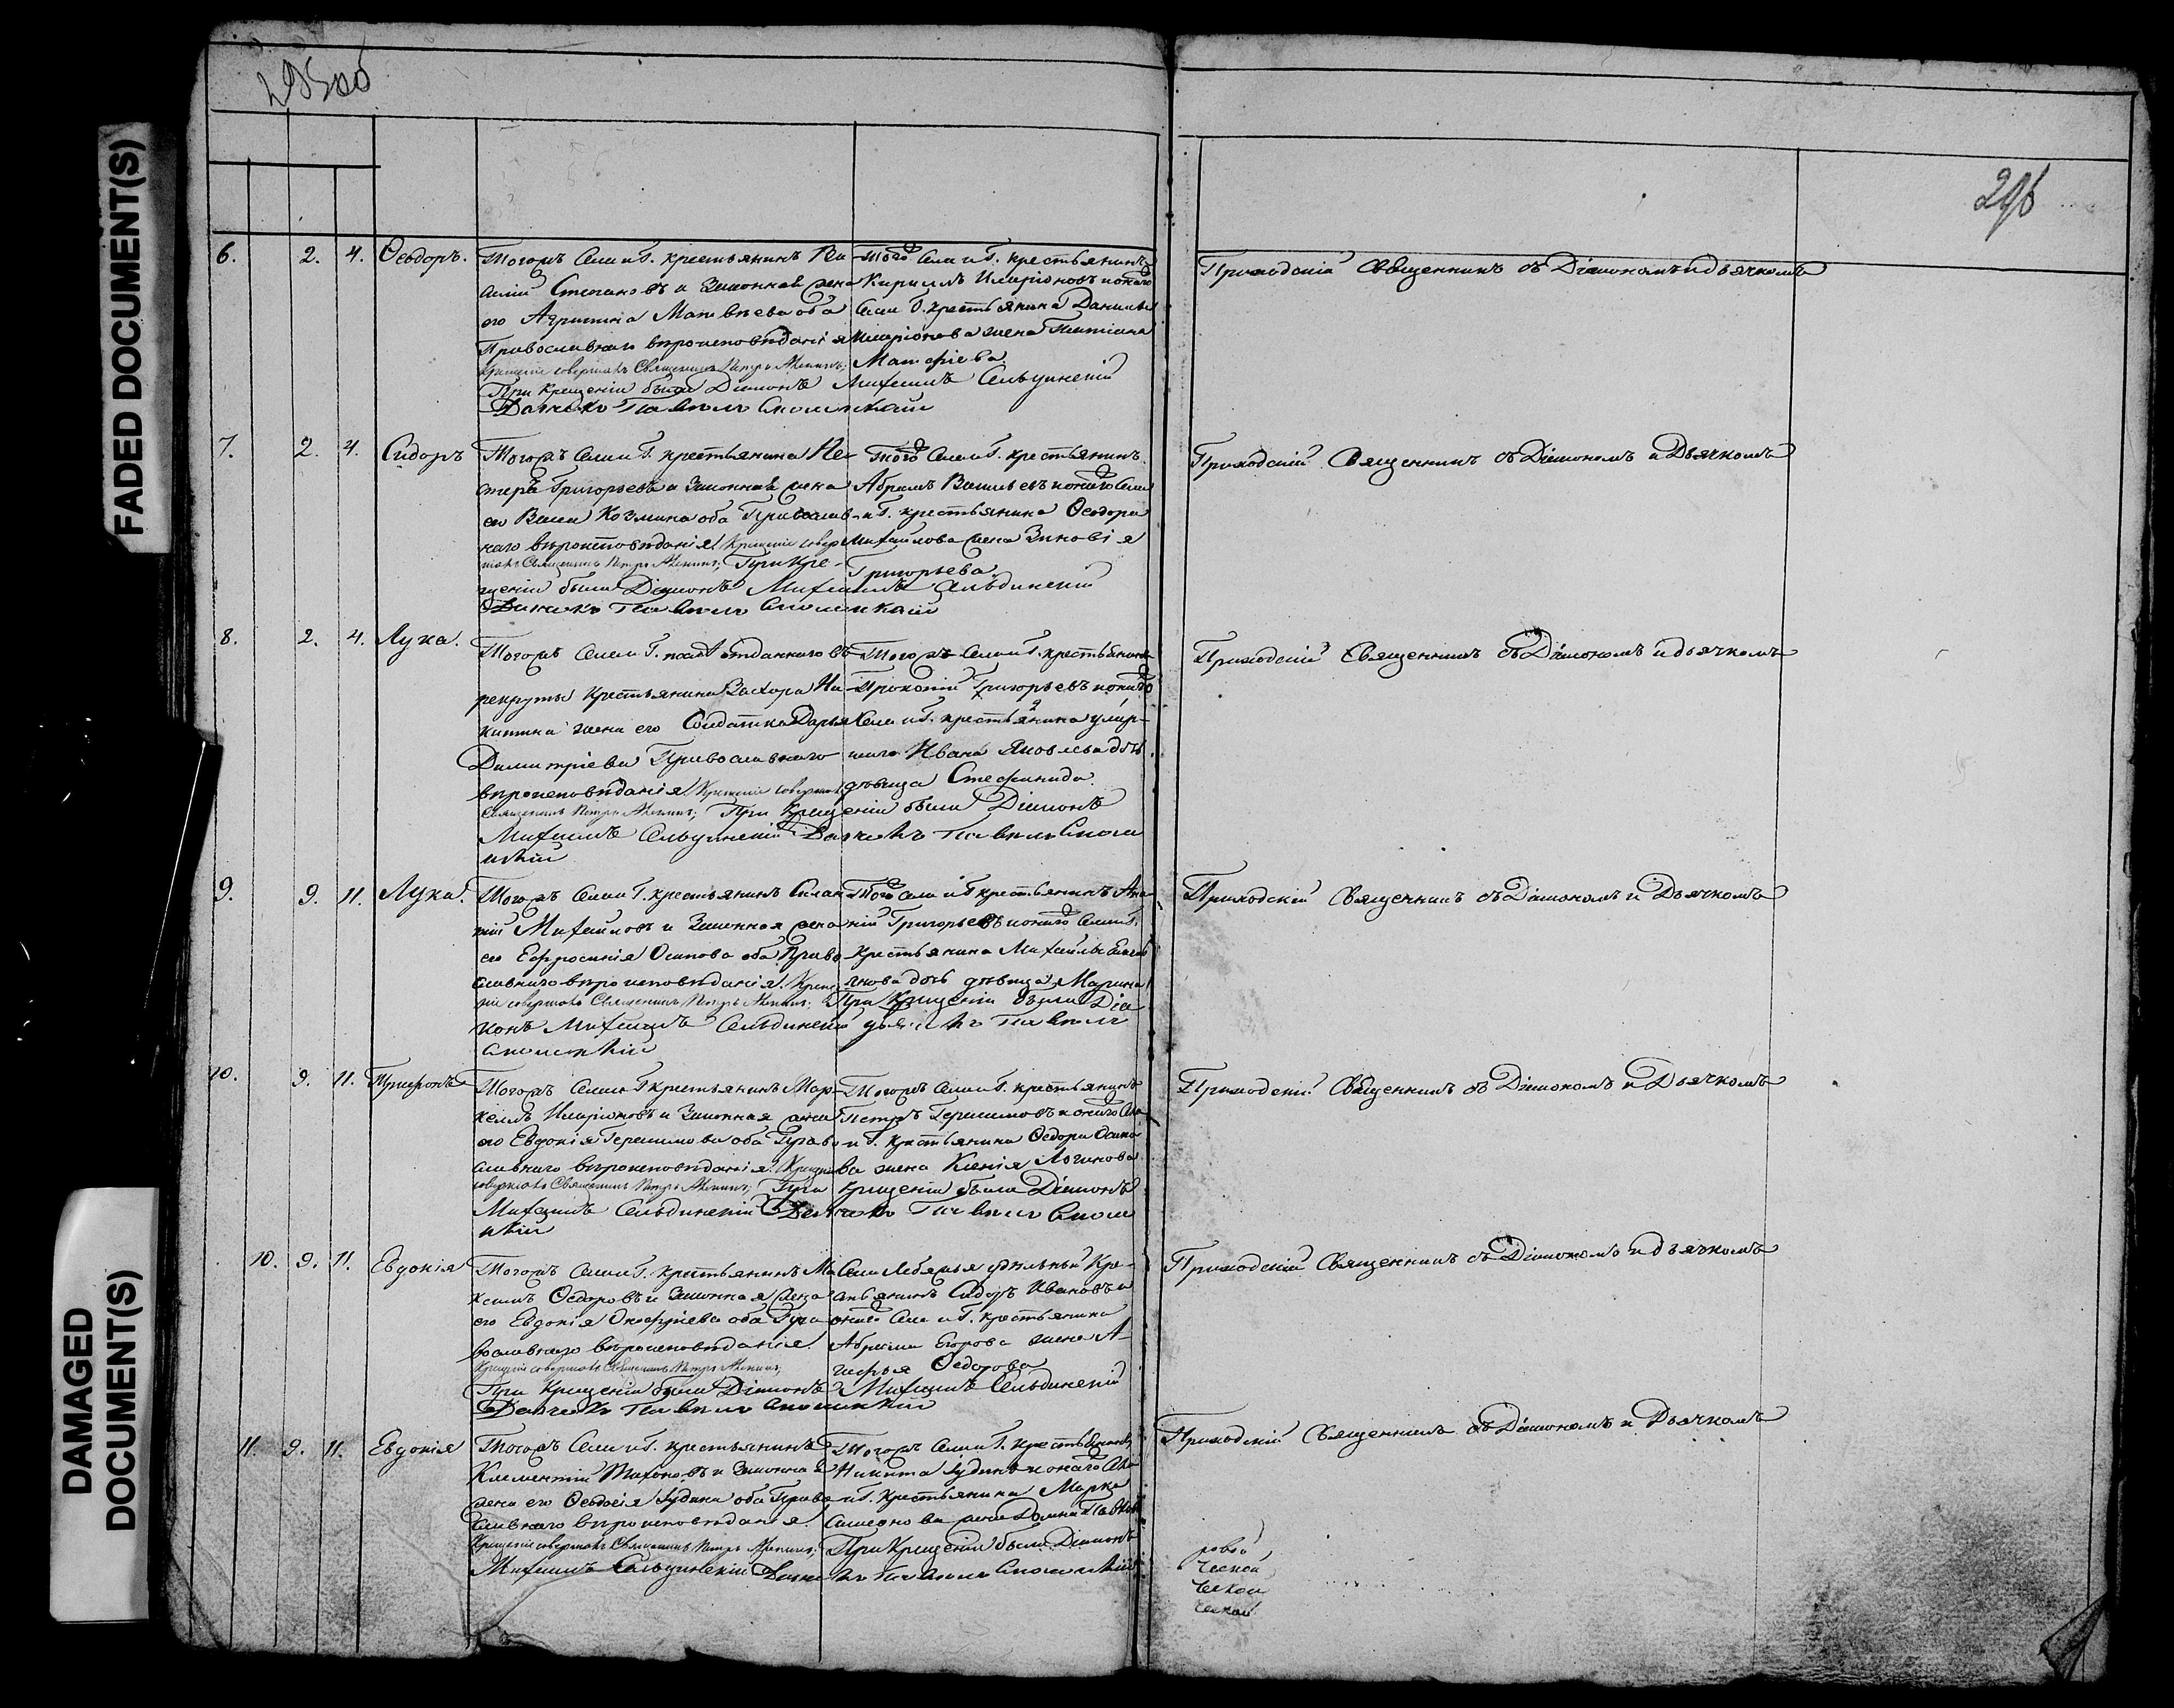 295об
296
FADED DOCUMENT(S)
DAMAGED
DOCUMENT(S)
6. 2. 4. Ѳеодоръ.
Тогожъ Села и Г. крестьянинъ
Степановъ и Законная жена
его Агрипина Матвѣева оба
Православнаго вѣроисповѣданія
крещеніе совершалъ Священникъ Петръ
При крещеніи были Діаконъ Михаилъ
Дьячекъ Павелъ
Того Села и Г. крестьянинъ
Кириллъ Иларіоновъ и онаго
Села Г. крестьянина Данилы
Иларіонова жена Татіана
Матфіева.
Приходскій Священникъ съ Діакономъ и дьячкомъ
7. 2. 4. Сидоръ
Тогожъ Села и Г. крестьянина Не-
стеръ Григорьевъ и Законная жена
его Васса Козмина оба Православ-
наго вѣроисповѣданія. Крещеніе совер
шалъ Священникъ Петръ При Кре-
щеніи были Діаконъ Михаилъ
Дьячекъ Павелъ
того Села и Г. крестьянинъ
Абрамъ Васильевъ и онаго Села
и Г. крестьянина Ѳеодора
Михайлова жена Зиновія
Григорьева
Приходскій Священникъ съ Діакономъ и Дьячкомъ
8. 2. 4. Лука.
Тогожъ Села и Г. отданнаго въ
рекруты Крестьянина Захара Ни-
китина жена его Солдатка Дарья
Димитріева Православнаго
вѣроисповѣданія Крещеніе совершалъ
Священникъ Петръ При Крещеніи были Діаконъ
Михаилъ Дьячекъ Павелъ
Тогожъ Села и Г. крестьянинъ
Прокопій Григорьевъ и онаго
Села и Г. крестьянина умер-
шаго Ивана Яковлева дочь
дѣвица Стефанида
Приходскій Священникъ съ Діакономъ и дьячкомъ
9. 9. 11. Лука.
Тогожъ Села и Г. крестьянинъ Силан
тій Михайловъ и Законная жена
его Ефросинія Осипова оба Право
славнаго вѣроисповѣданія. Креще
ніе совершалъ Священникъ Петръ При Крещеніи были Діа
конъ Михаилъ дьячекъ Павелъ
Того Села и Г. крестьянинъ Ана
ній Григорьевъ и онаго Села и Г.
крестьянина Михайлы
дочь дѣвица Марина
Приходскій Священникъ съ Діакономъ и Дьячкомъ
10. 9. 11. Трифонъ
Тогожъ Села и Г. крестьянинъ Мар-
келъ Иларіоновъ и Законная жена
его Евдокія Герасимова оба Право
славнаго вѣроисповѣданія. Крещеніе
совершалъ Священникъ Петръ При крещеніи были Діаконъ
Михаилъ Дьячекъ Павелъ
Тогожъ Села и Г. крестьянинъ
Петръ Герасимовъ и онаго Села
и Г. крестьянина Ѳедора Осипо
ва жена Ксенія Логинова
Приходскій Священникъ съ Діакономъ и Дьячкомъ
10. 9. 11. Евдокія
Тогожъ Села и Г. крестьянинъ Ма
ксимъ Ѳедоровъ и Законная жена
его Евдокія Онофріева оба Пра
вославнаго вѣроисповѣданія.
Крещеніе совершалъ Священникъ Петръ
При Крещеніи были Діаконъ Михаилъ
Дьячекъ Павелъ
Села Лебяжья удѣльный Кре-
стьянинъ Сидоръ Ивановъ и
онаго Села и Г. крестьянина
Абрама Егорова жена А-
гафья Ѳедорова
Приходскій Священникъ съ Діакономъ и дьячкомъ
11. 9. 11. Евдокія
Тогожъ Села и Г. крестьянинъ
Климентій и Законная
жена его Ѳеодосія Іудина оба Право
славнаго вѣроисповѣданія.
Крещеніе совершалъ Священникъ Петръ При Крещеніи были Діаконъ
Михаилъ Дьячекъ Павелъ
Тогожъ Села и Г. крестьянинъ
Никита Іудинъ и онаго Села
и Г. Крестьянина Марка
жена Домна
Приходскій Священникъ съ Діакономъ и Дьячкомъ